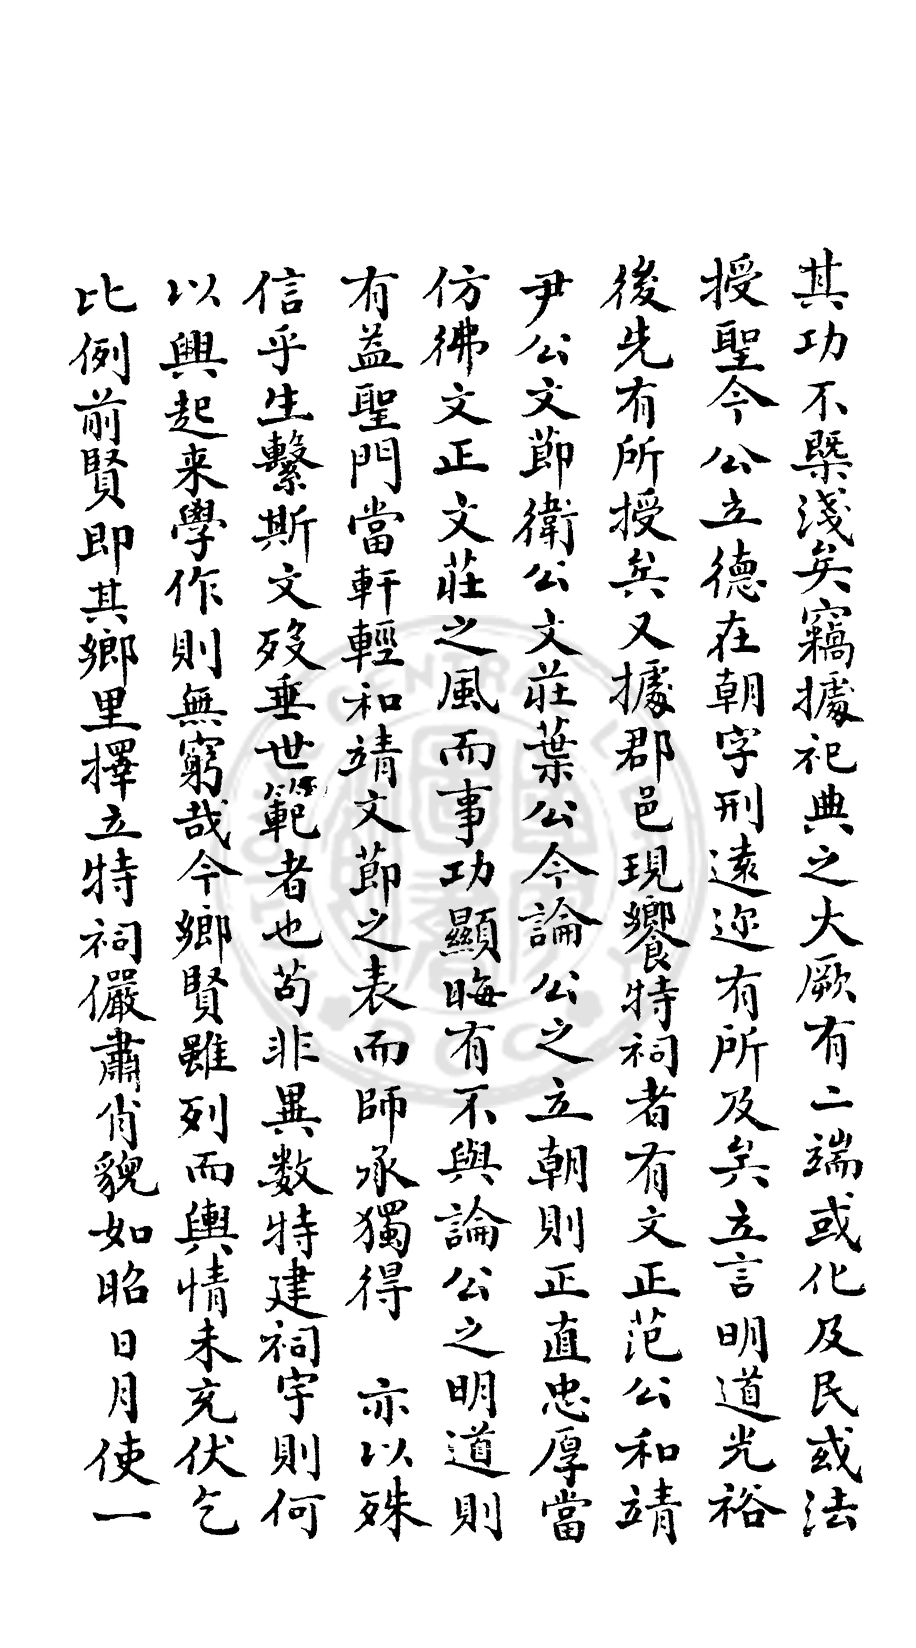 其功不槩淺矣竊據祀典之大厥有二端或化及民或法
授聖今公立德在朝字刑遠迩有所及矣立言明道光裕
後先有所授矣又據郡邑現饗特祠者有文正范公和靖
尹公文節衛公文莊葉公今論公之立朝則正直忠厚當
仿彿文正文莊之風而事功顯晦有不與論公之明道則
有益聖門當軒輕和靖文節之表而師承獨得　亦以殊
信乎生繫斯文歿垂世範者也苟非異数特建祠宇則何
以興起来學作則無窮哉今鄉賢雖列而輿情未充伏乞
比例前賢即其鄉里擇立特祠儼肅肖貌如昭日月使一
CENTRAL